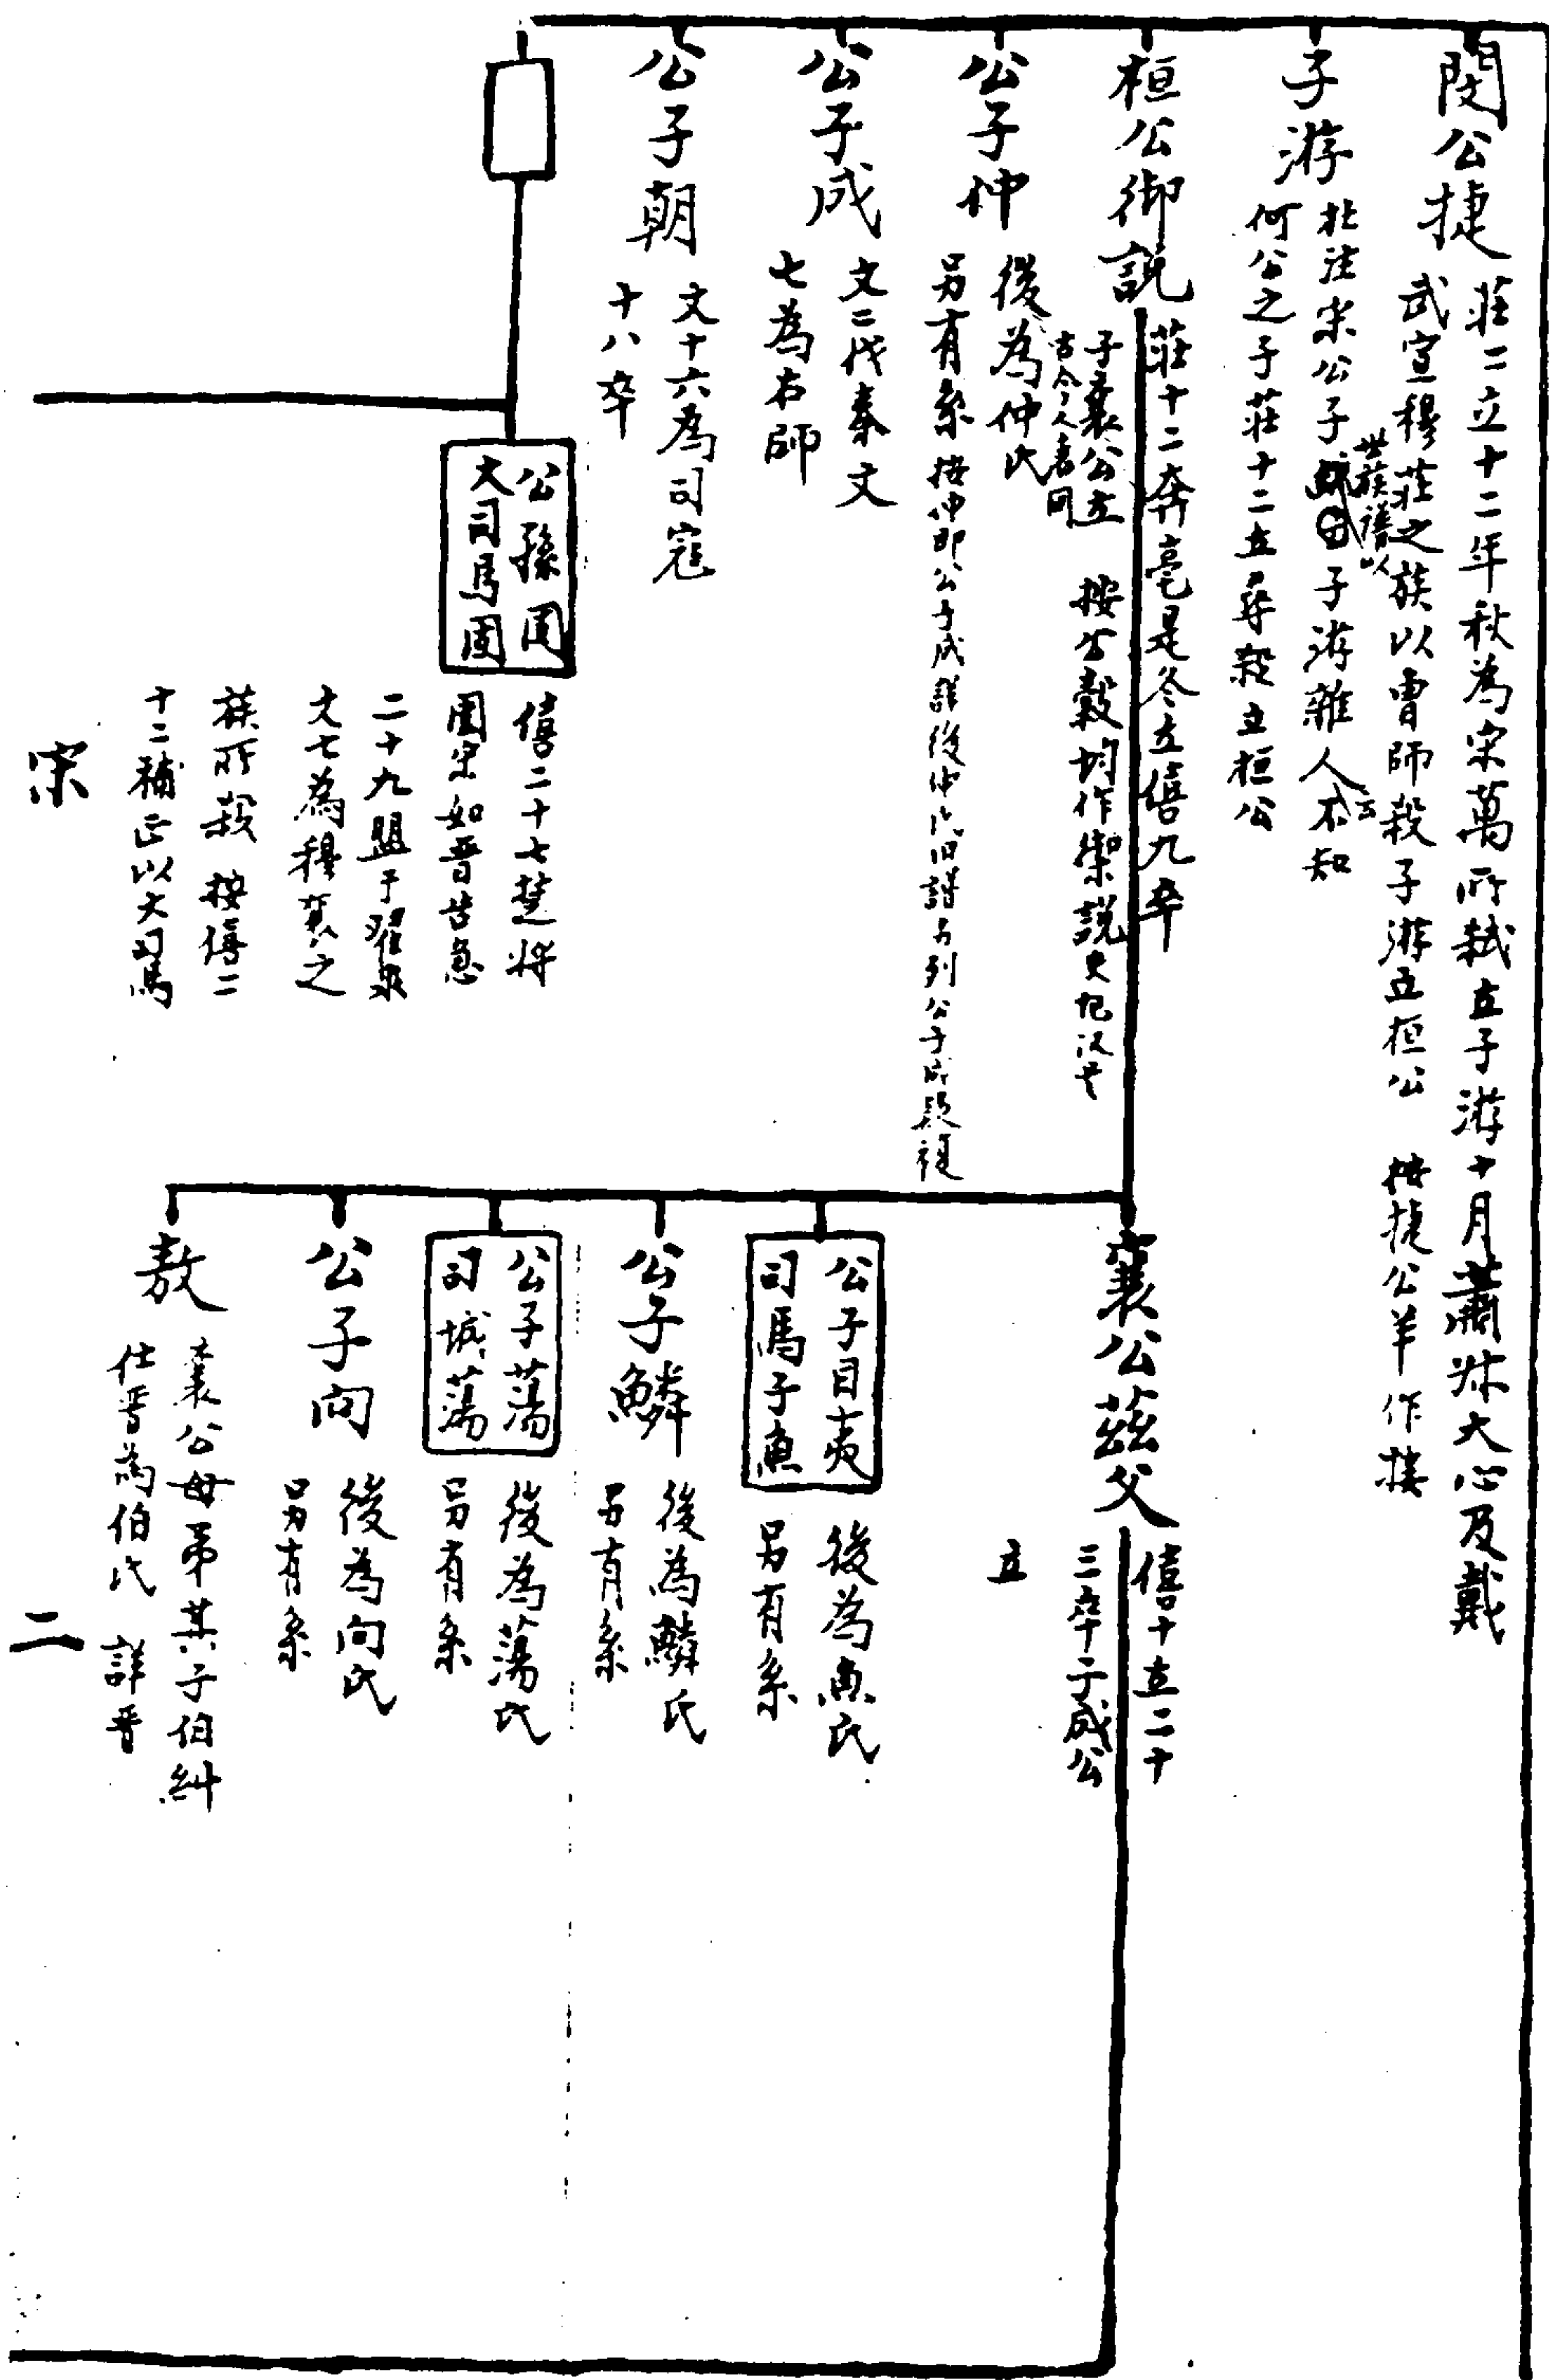 閔公捷
莊二立十二年秋為宋萬所弒立子游十月蕭叔大心及戴
武宣穆莊之族以曹師殺子游立桓公 按捷公羊作接
子游
杜注宋公子
世族譜以
子游雜人云不知
何公之子莊十二立尋殺立桓公
桓公御說
莊十二奔亳是冬立僖九卒
子襄公立 按公穀均作禦說史記漢書
古今人表同
公子仲
後為仲氏
另有系 按仲即公子成詳後仲氏旧譜另列公子成段複
公子成
文二伐秦文
七為右師
公子朝
文十六為司寇
十八卒
公孫固
大司馬固
僖二十七楚將
圍宋如晉告急
二十九盟于翟泉
文七為穆襄之
族所殺 按僖二
十二補正以大司馬
襄公茲父
僖十立二十
三卒子成公
立
公子目夷
司馬子魚
後為魚氏
另有系
公子鱗
後為鱗氏
另有系
公子蕩
司城蕩
後為蕩氏
另有系
公子向
後為向氏
另有系
敖
襄公母弟其子伯糾
仕晉為伯氏 詳晉
宋
二